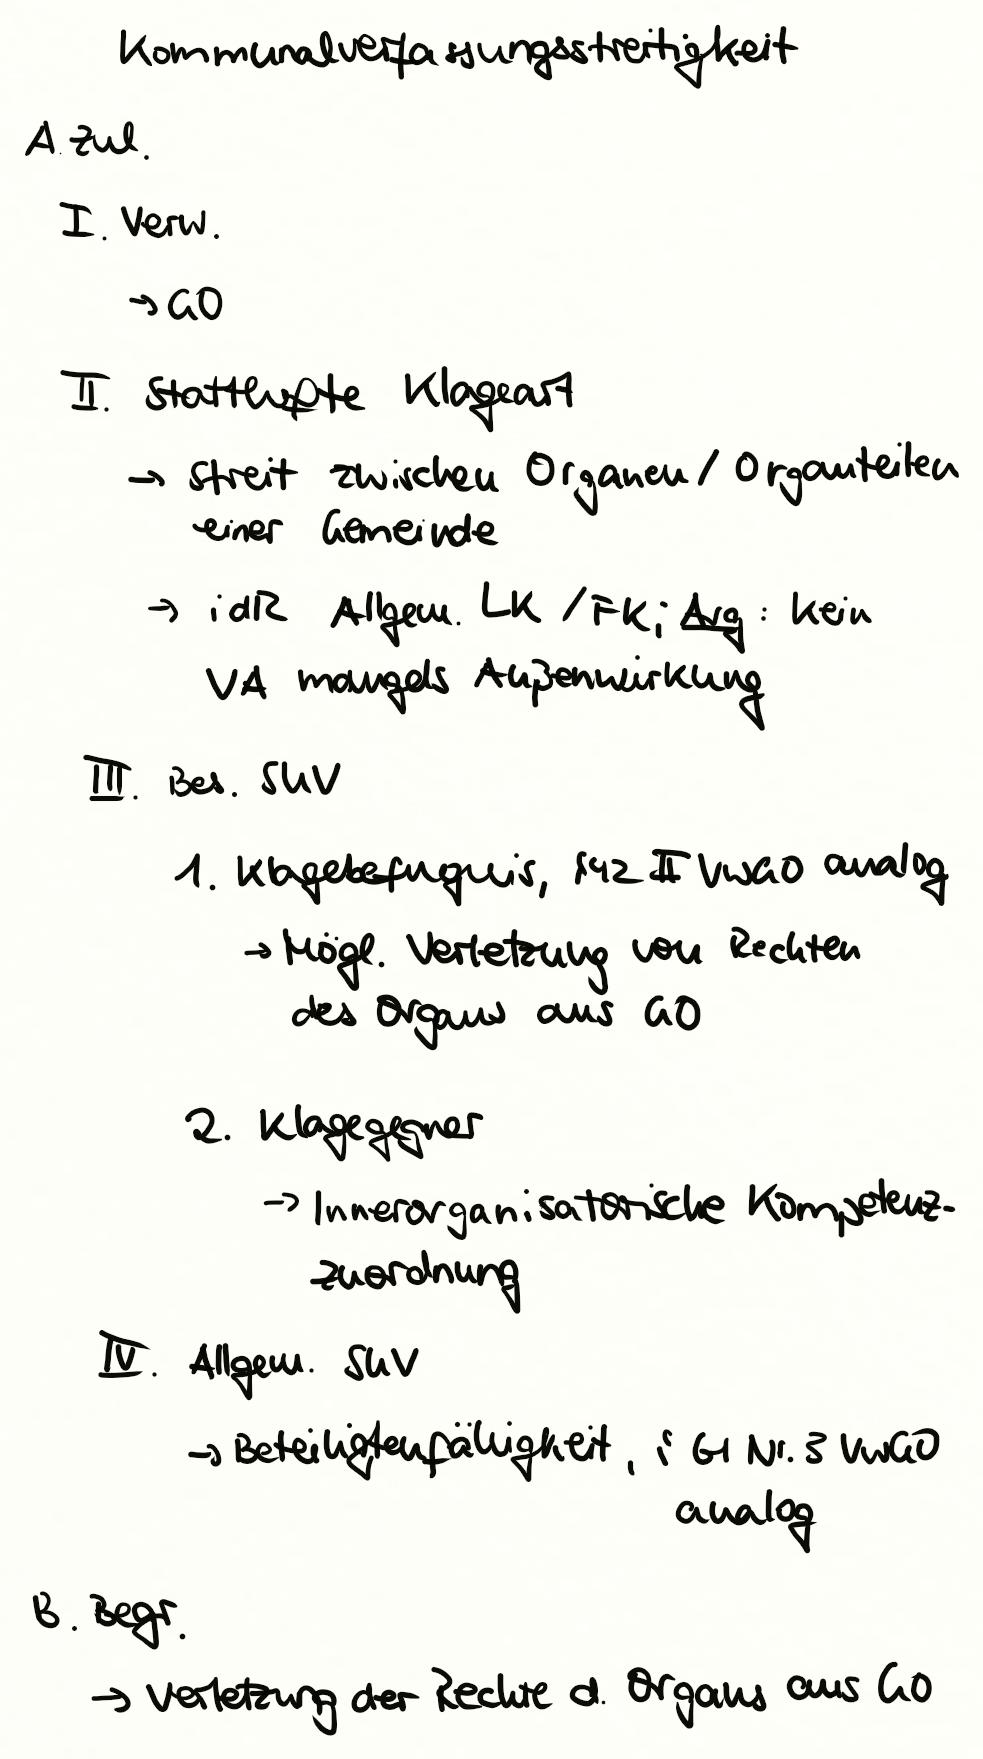 Kommunalverfassungsstreitigkeit
A. Zul.
I. Verw.
→ GO
II. Statthafte Klageart
→ Streit zwischen Organen / Organteilen
einer Gemeinde
→ idR Allgem. LK / FK; Arg: kein
VA mangels Außenwirkung
III. Bes. SUV
1. Klagebefugnis, § 42 II VwGO analog
→ Mögl. Verletzung von Rechten
des Organs aus GO
2. Klagegegner
→ Innerorganisatorische Kompetenz-
zuordnung
IV. Allgem. SUV
→ Beteiligtenfähigkeit, § 61 Nr. 3 VwGO
analog
B. Begr.
→ Verletzung der Rechte d. Organs aus GO